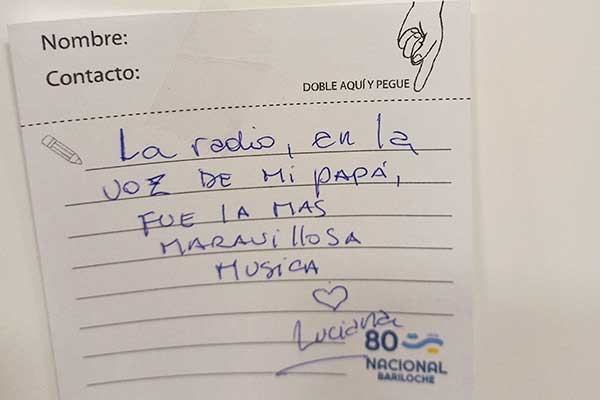 Nombre:
Contacto:
DOBLE AQUÍ Y PEGUE
La radio, en la
VOZ DE MI PAPÁ,
FUE LA MAS
MARAVILLOSA
MUSICA
Luciana
80
NACIONAL
BARILOCHE